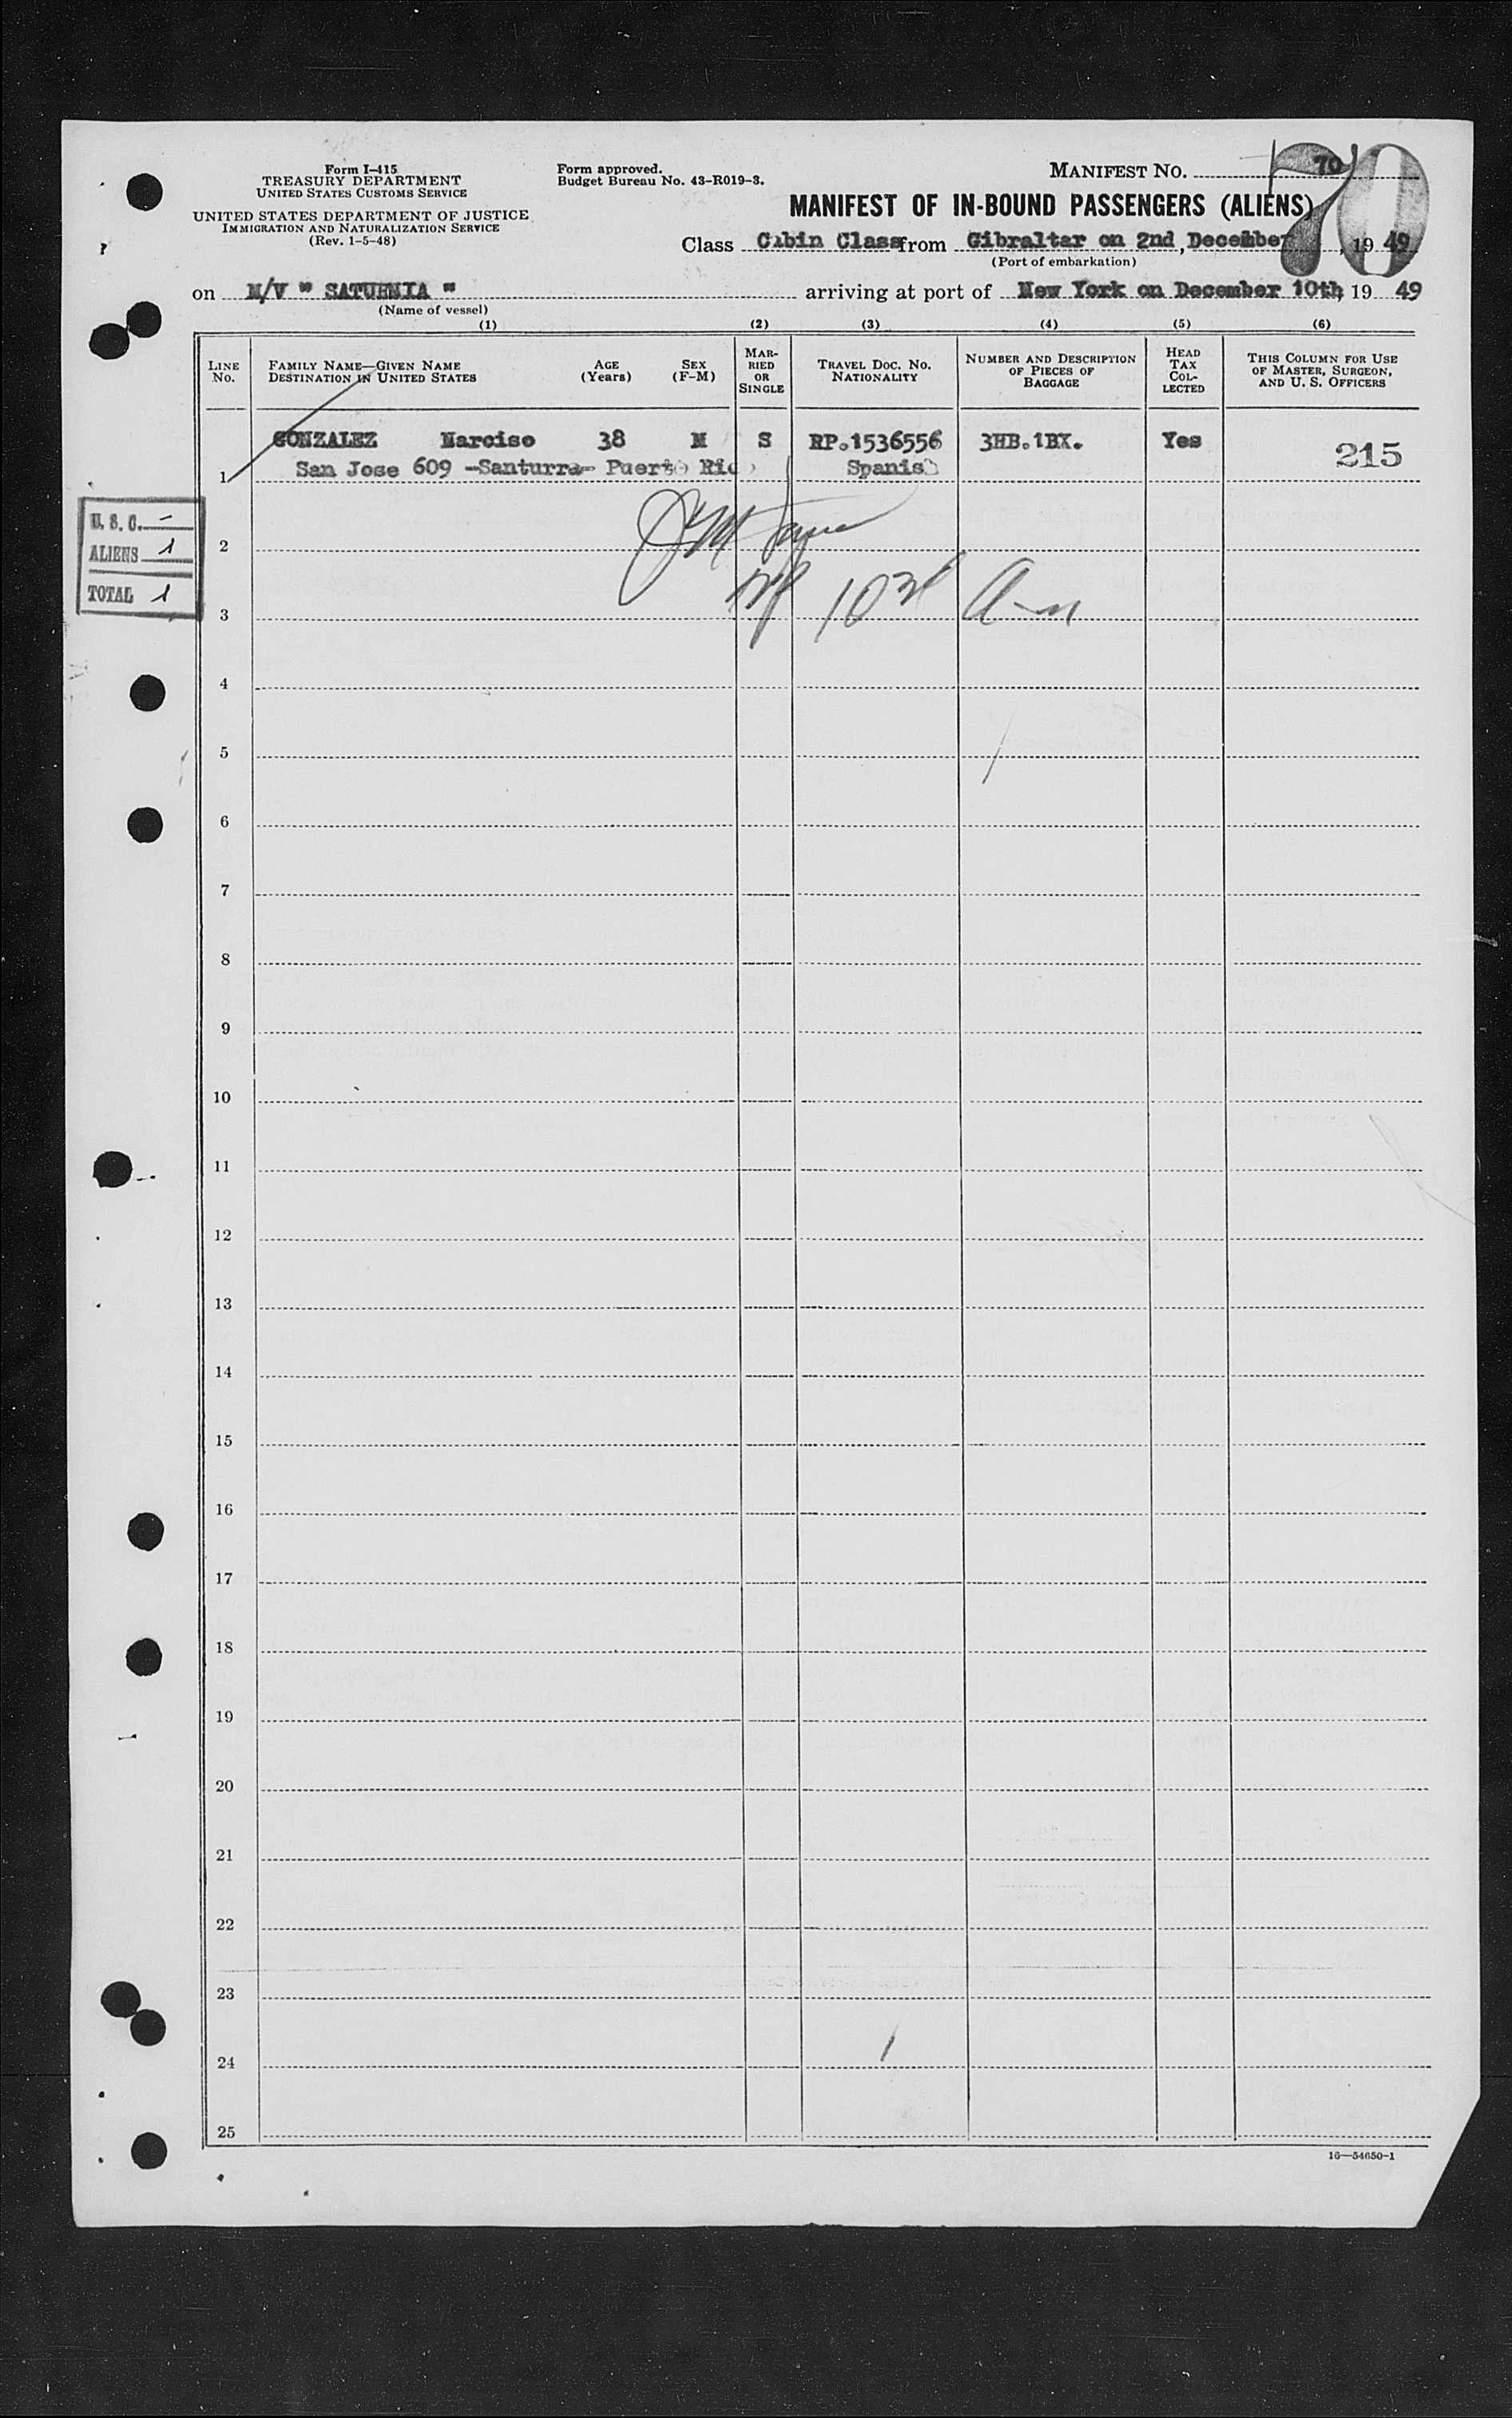 Form I-415
TREASURY DEPARTMENT
UNITED STATES CUSTOMS SERVICE
UNITED STATES DEPARTMENT OF JUSTICE
IMMIGRATION AND NATURALIZATION SERVICE
(Rev. 1-5-48)
Form approved.
Budget Bureau No. 43-R019-3.
MANIFEST NO. 70
70
MANIFEST OF IN-BOUND PASSENGERS (ALIENS)
Class Cabin Class from Gibraltar on 2nd, December, 19 49
(Port of embarkation)
on M/V " SATURNIA " arriving at port of New York on December 10th, 19 49
(Name of vessel)
(1) (2) (3) (4) (5) (6)
LINE NO. FAMILY NAME—GIVEN NAME DESTINATION IN UNITED STATES AGE (Years) SEX (F-M) MARRIED OR SINGLE TRAVEL DOC. NO. NATIONALITY NUMBER AND DESCRIPTION OF PIECES OF BAGGAGE HEAD TAX COLLECTED THIS COLUMN FOR USE OF MASTER, SURGEON, AND U. S. OFFICERS
GONZALEZ Narciso 38 M S RP.1536556 3HB.1BX. Yes 215
1 San Jose 609 -Santurra- Puerto Rico Spanish
U. S. C. -
ALIENS 1
TOTAL 1
2
3
4
5
6
7
8
9
10
11
12
13
14
15
16
17
18
19
20
21
22
23
24
25
16—54650-1